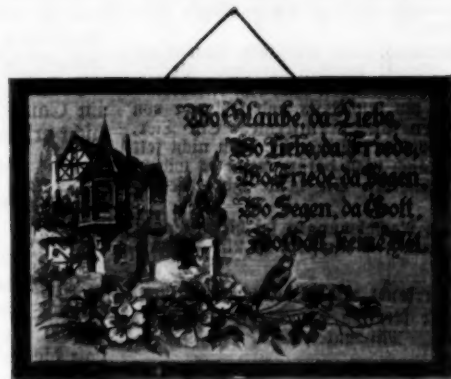 Wo Glaube, da Liebe,
Wo Liebe, da Friede,
Wo Friede, da Segen,
Wo Segen, da Gott,
Wo Gott, keine Not.